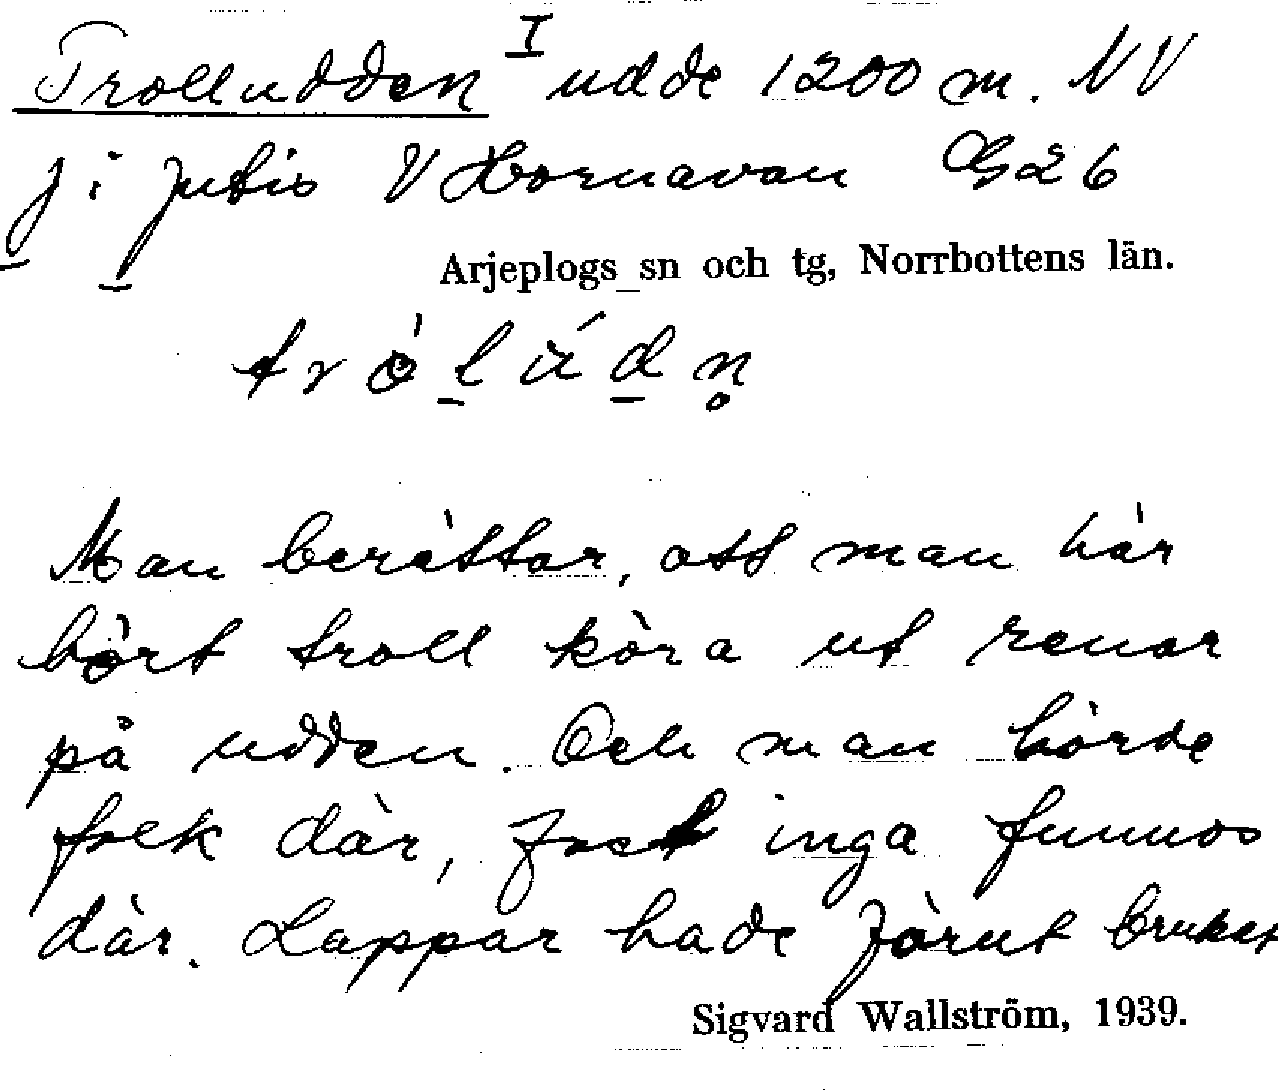 Trolludden I udde 1200 m. NV
j i Jutis V Hornavan G26
Arjeplogs sn och tg, Norrbottens län.
Man berättar, att man här
hört troll köra ut renar
på udden. Och man hörde
folk där, fast inga funnos
där. Lappar hade förut brukat
Sigvard Wallström, 1939.